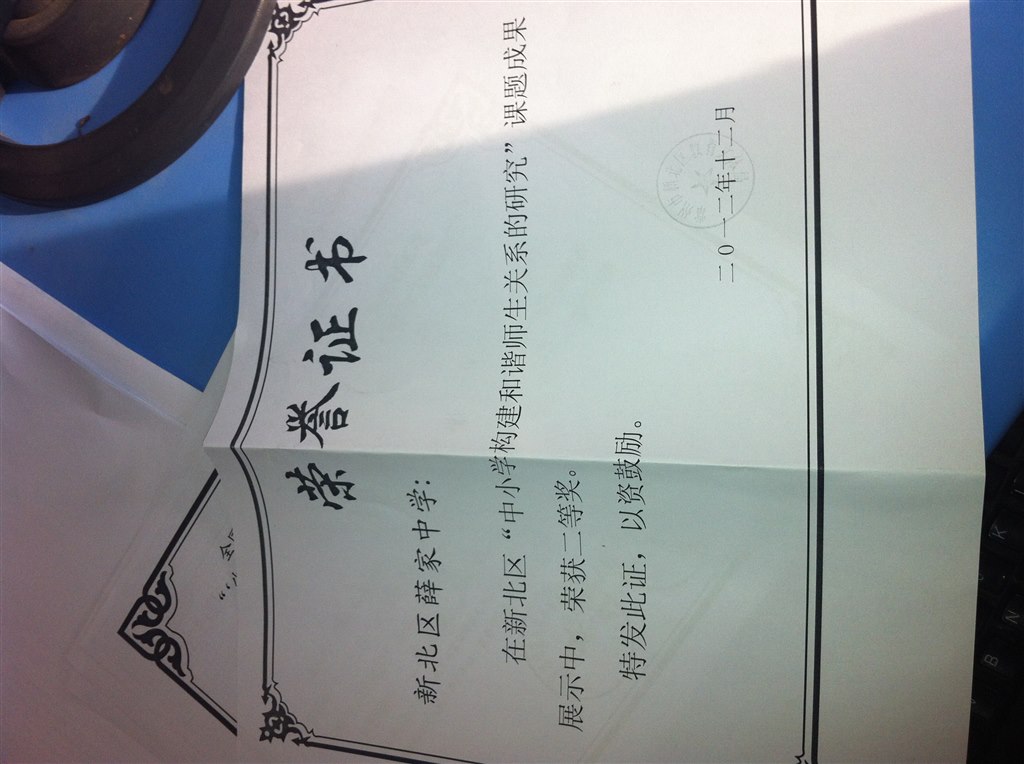 荣誉证书
新北区薛家中学：
在新北区“中小学构建和谐师生关系的研究”课题成果
展示中，荣获二等奖。
特发此证，以资鼓励。
二〇一二年十二月
K
N
B